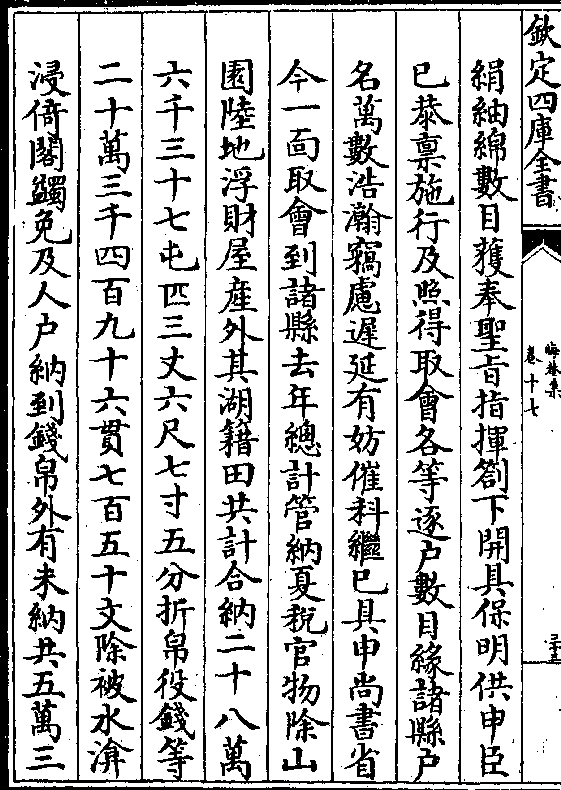 欽定四庫全書
晦菴集
卷十七
三十三
絹紬綿數目獲奉聖旨指揮劄下開具保明供申臣
已恭禀施行及照得取會各等逐户數目緣諸縣户
名萬數浩瀚竊慮遲延有妨催科繼已具申尚書省
今一面取會到諸縣去年總計管納夏税官物除山
園陸地浮財屋産外其湖籍田共計合納二十八萬
六千三十七屯匹三丈六尺七寸五分折帛役錢等
二十萬三千四百九十六貫七百五十文除被水渰
浸倚閣蠲免及人户納到錢帛外有未納共五萬三